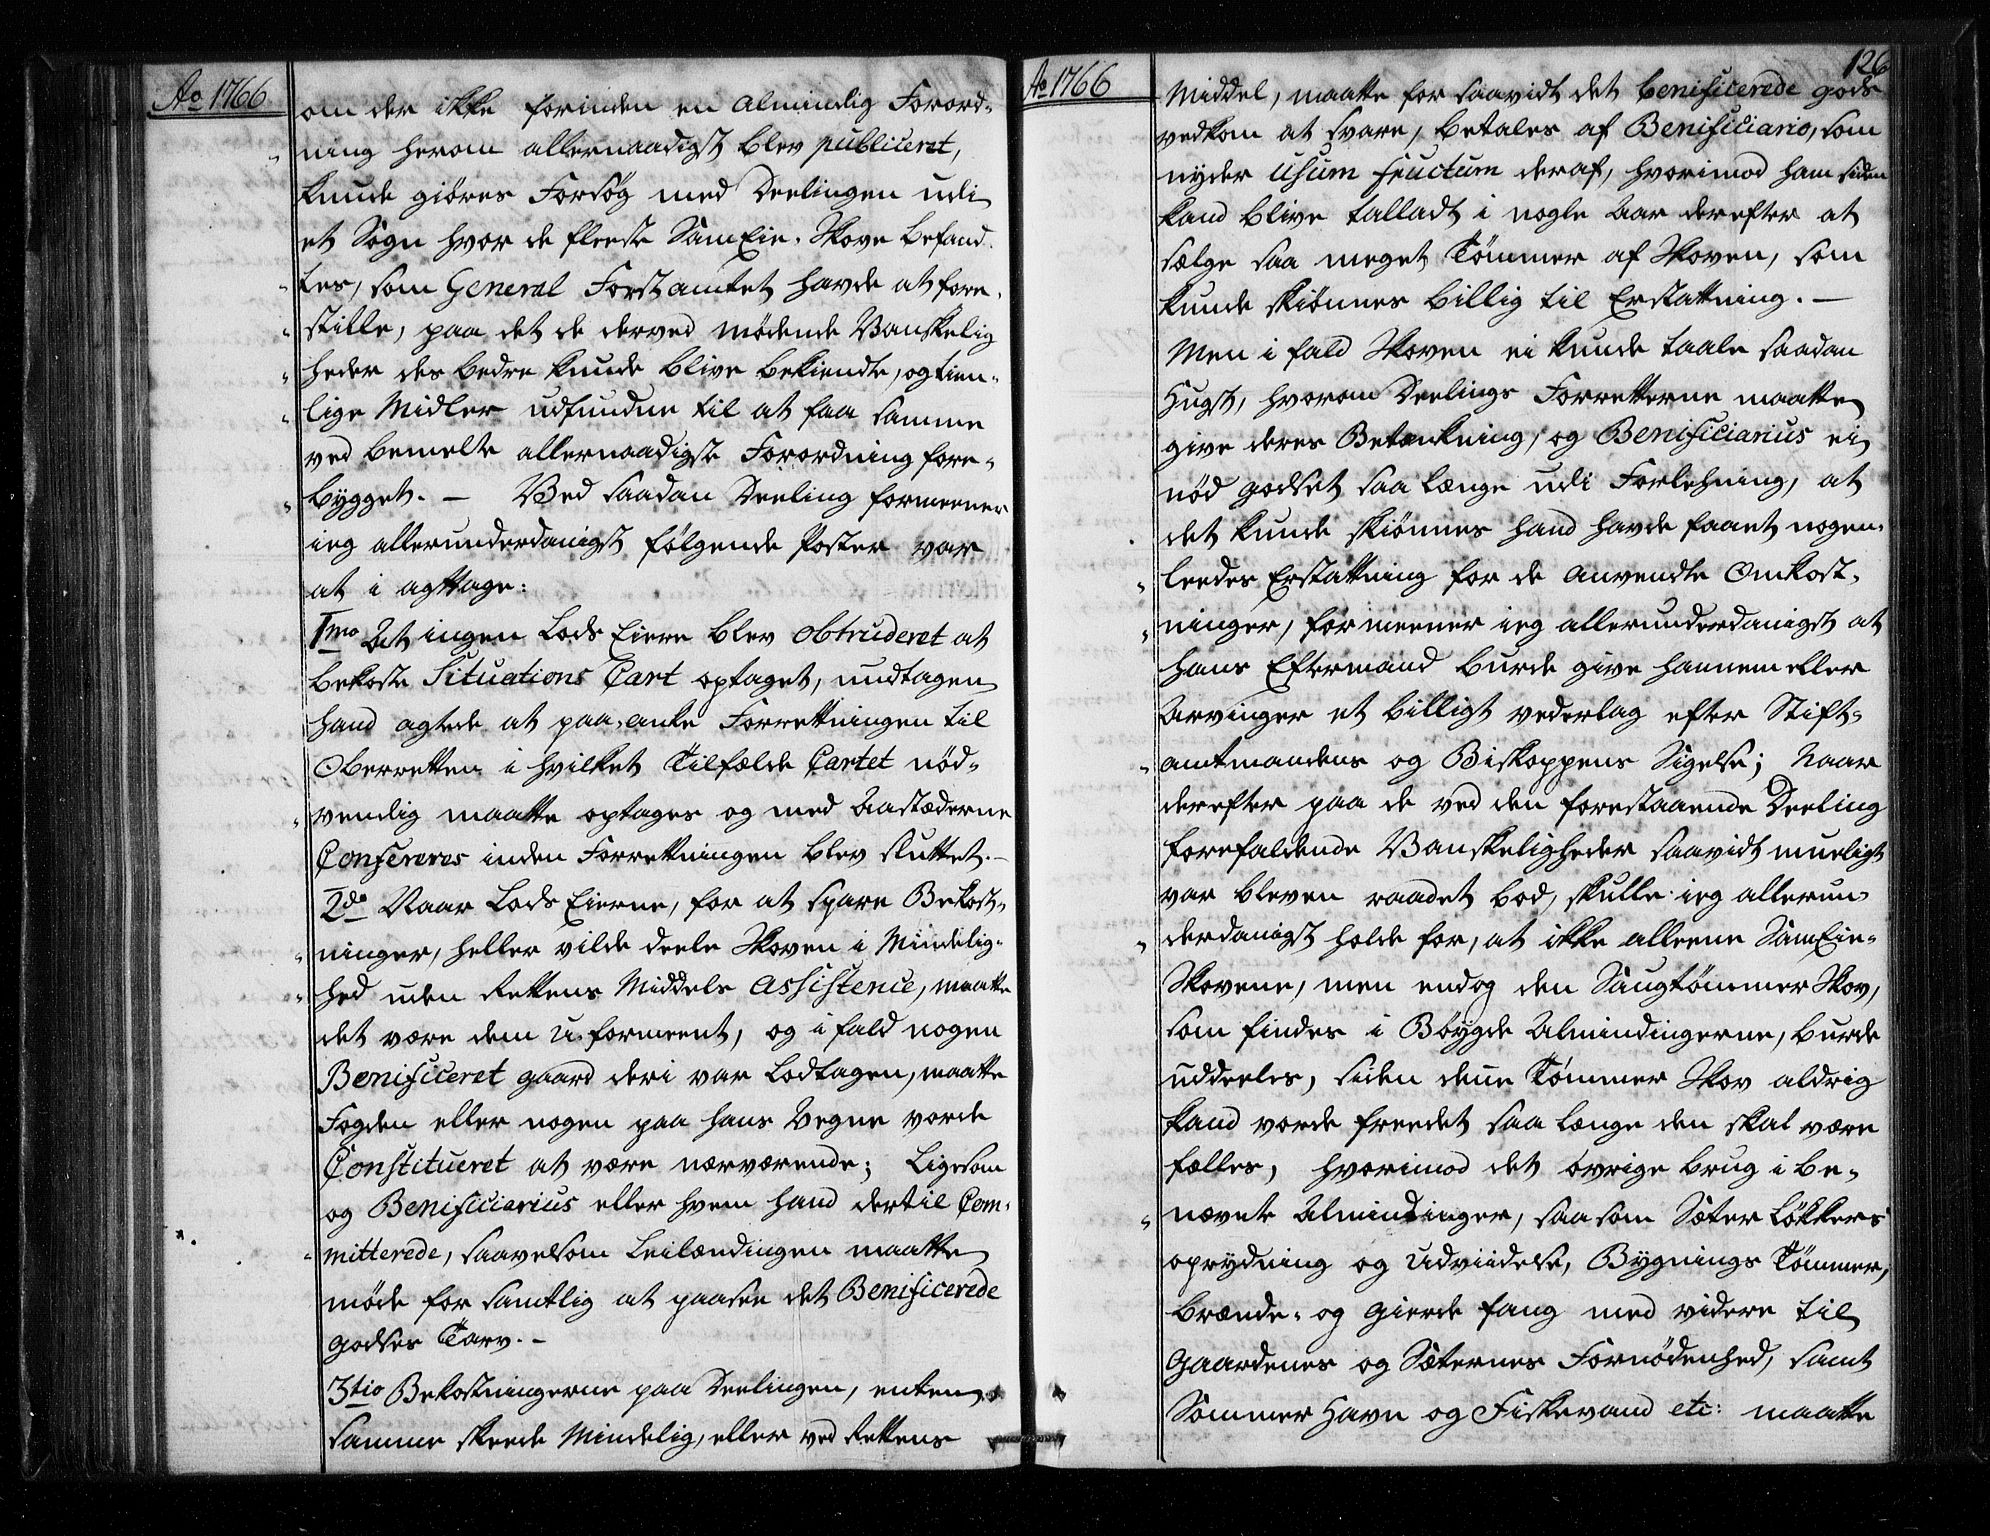 Ao 1766
om der ikke forinden en almindlig Forord-
ning herom allernaadigst blev publiceret,
kunde giøres Forsøg med Deelingen udi
et Sogn hvor de fleeste SamEie-Skove befand-
tes, som General Forstamtet havde at fore-
stille, paa det de derved mødende Vanskelig
heder des bedre kunde blive bekiendte, og tien-
lige Midler udfundne til at faa samme
ved bemelte allernaadigste Forordning fore-
bygget. – Ved saadan Deeling formeener
ieg allerunderdanigst følgende Poster var
at i agttage:
1mo At ingen Lods Eiere blev obtruderet at
bekoste Situations Cart optaget, undtagen
hand agtede at paa-anke Forrettningen til
Oberretten i hvilket Tilfælde Cartet nød-
vendig maatte optages og med Aastæderne
Confereres inden Forrettningen blev sluttet. –
2do Naar Lods Eierne, for at spare Bekost-
ninger, heller vilde deele Skoven i Mindelig-
hed uden Rettens Middels Assistence, maatte
det være dem u-formeent, og i fald nogen
Benificeret gaard deri var Lodtagen, maatte
Fogden eller nogen paa hans Vegne vorde
Constitueret at være nærværende; Ligesom
og Benificiarius eller hvem hand dertil Com-
mitterede, saavelsom Leilændingen maatte
møde for samtlig at paasee det Benificerede
godses Tarv. –
3tio Bekostningerne paa Deelingen, enten
samme skeede Mindelig, eller ved Rettens
Ao 1766
126
Middel, maatte for saavidt det benificerede gods
vedkom at svare, betales af Benificiario, som
nyder Usum fructum deraf, hvorimod ham siden
kand blive talladt i nogle Aar derefter at
sælge saa meget Tømmer af Skoven, som
kunde skiønnes billig til Erstattning. –
Men i fald Skoven ei kunde taale saadan
Hugst, hvorom Deelings Forretterne maatte
give deres Betænkning, og Benificiarius ei
nød godset saa længe udi Forlehning, at
det kunde skiønnes hand havde faaet nogen-
leedes Erstattning for de anvendte Omkost-
ninger, formeener ieg allerunderdanigst at
hans Eftermand burde give hannem eller
Arvinger et billigt vederlag efter Stift-
amtmandens og Biskoppens Sigelse; Naar
derefter paa de ved den forestaaende Deeling
forefaldende Vanskeligheder saavidt mueligt
var bleven raadet bod, skulle ieg allerun-
derdanigst holde for, at ikke alleene SamEie-
Skovene, men endog den Saugtømmer Skov,
som findes i Bøygde Almindingerne, burde
uddeeles, siden denne Tømmer Skov aldrig
kand vorde freedet saa længe den skal være
fælles, hvorimod det øvrige brug i be-
nævnte Almindinger, saa som Sæter Løkkers
oprydning og Udviidelse, Bygnings Tømmer,
brænde- og gierde fang med videre til
Gaardenes og Sæternes Fornødenhed, samt
Sommer Havn og Fiskevand etc: maatte